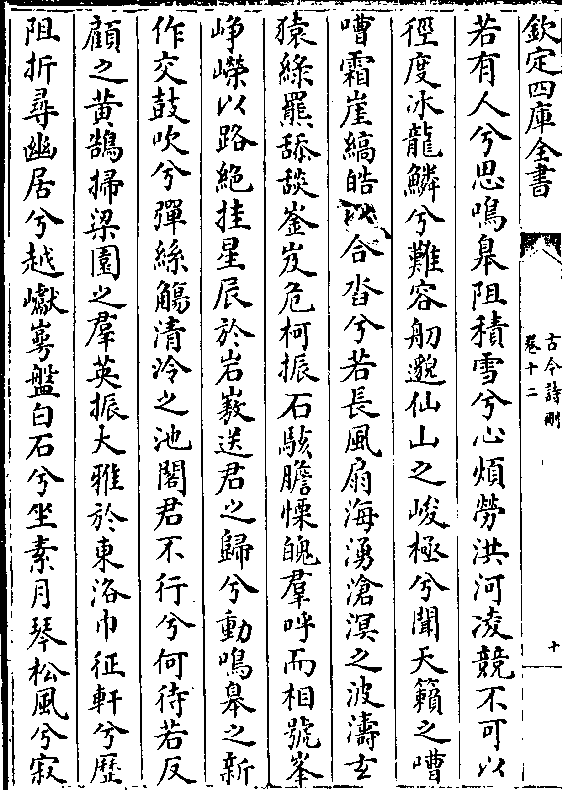 欽定四庫全書
古今詩刪
卷十二
十
若有人兮思鳴臯阻積雪兮心煩勞洪河凌競不可以
徑度氷龍鱗兮難容舠邈仙山之峻極兮聞天籟之嘈
嘈霜崖縞皓以合沓兮若長風扇海湧滄溟之波濤玄
猿綠羆舔舕崟岌危柯振石駭膽慄魄羣呼而相號峯
崢嶸以路絶挂星辰於岩嶅送君之歸兮動鳴臯之新
作交鼓吹兮彈絲觴清泠之池閣君不行兮何待若反
顧之黄鵠掃梁園之羣英振大雅於東洛巾征軒兮歴
阻折尋幽居兮越巘崿盤白石兮坐素月琴松風兮寂